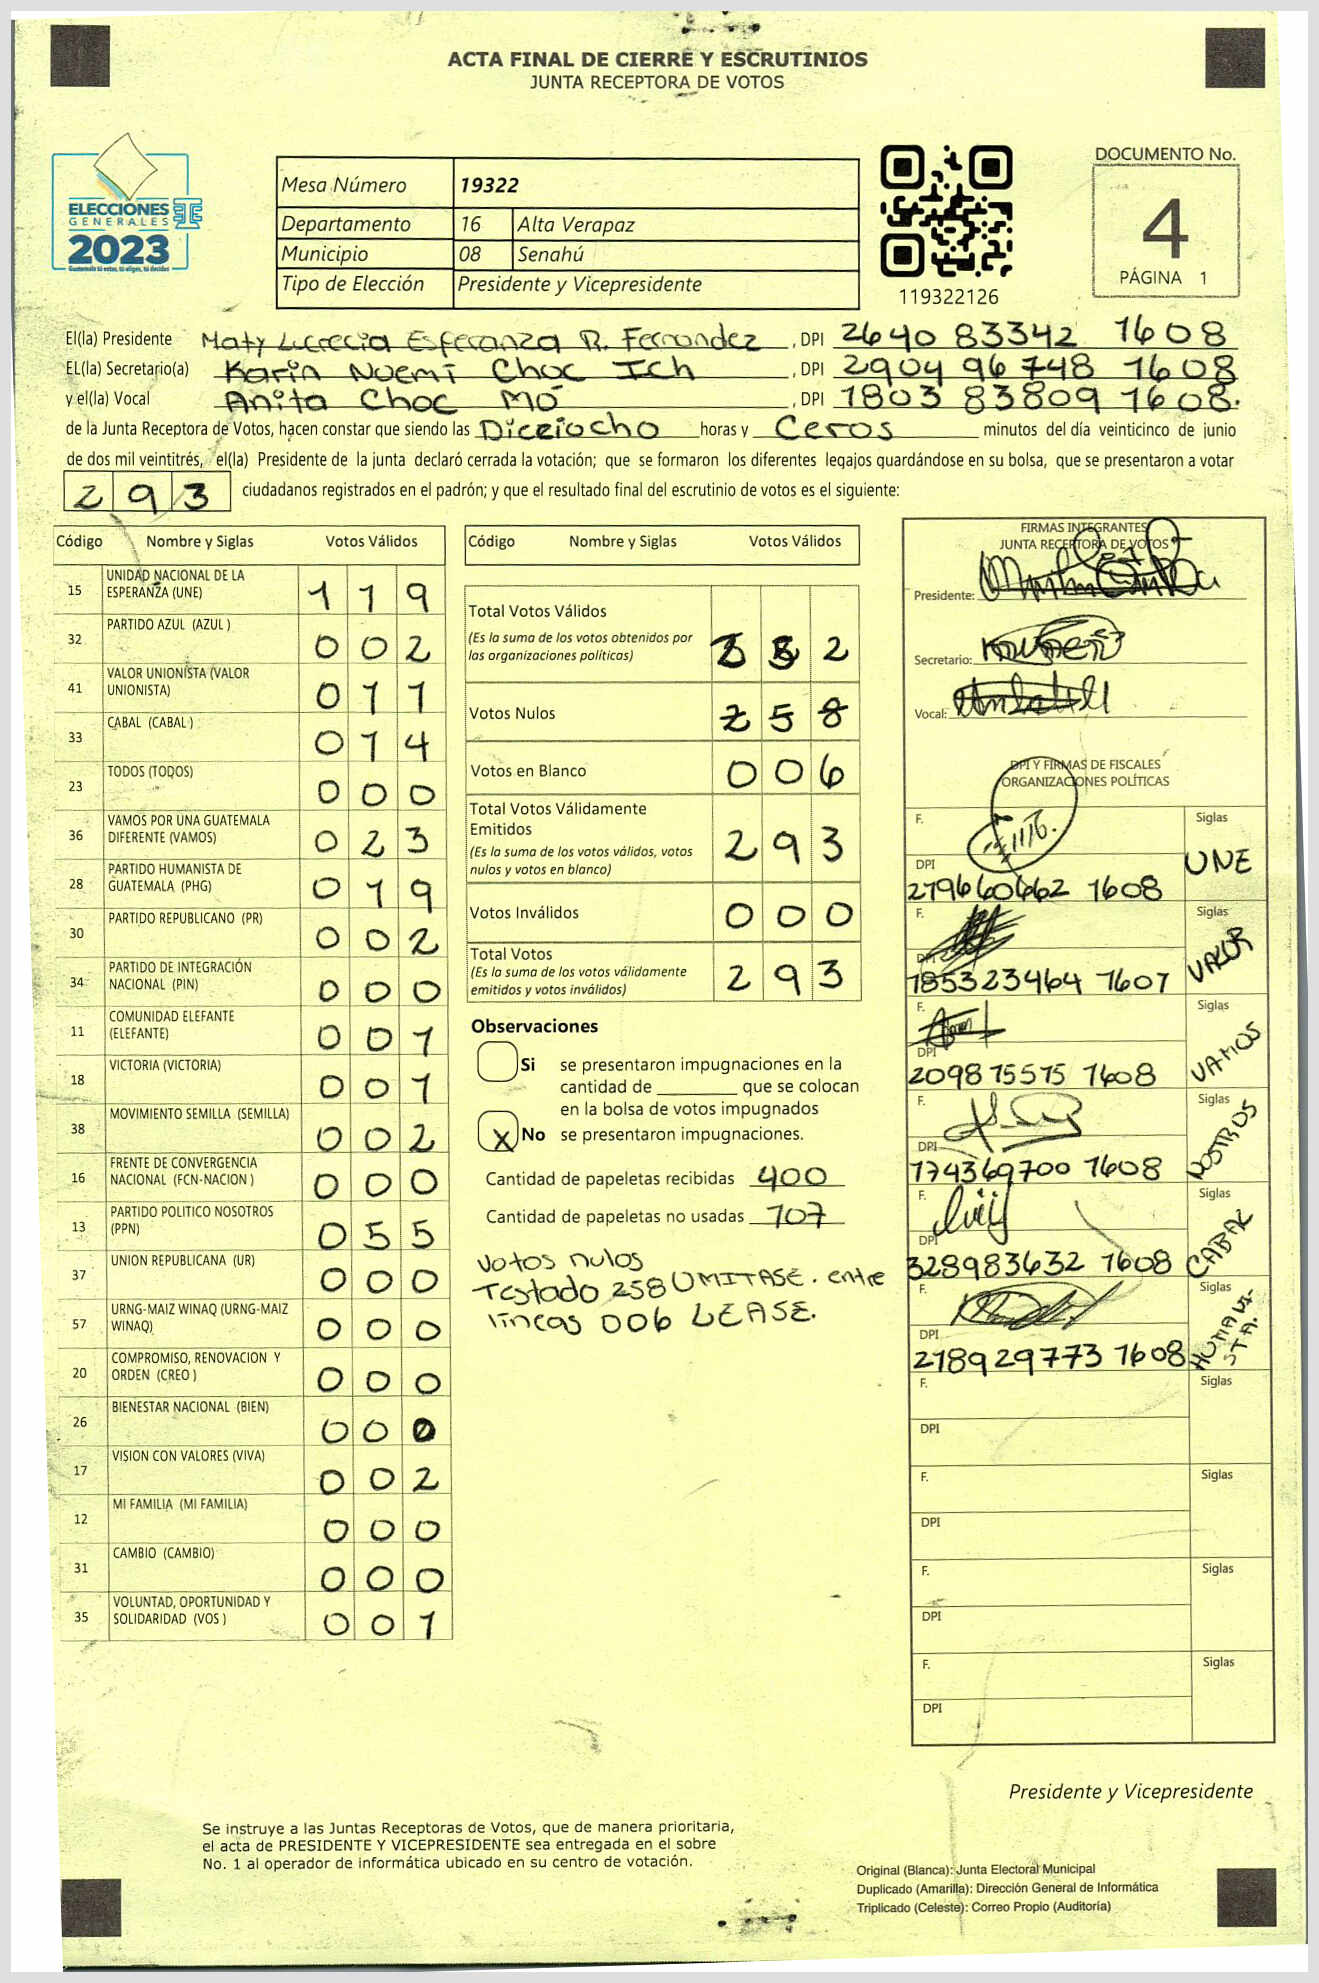 ACTA FINAL DE CIERRE Y ESCRUTINIOS
JUNTA RECEPTORA DE VOTOS
ELECCIONES
GENERALES
2023
Guatemala tú votas, tú eliges, tú decides
Mesa Número 19322
Departamento 16 Alta Verapaz
Municipio 08 Senahú
Tipo de Elección Presidente y Vicepresidente
119322126
DOCUMENTO No.
4
PÁGINA 1
El(la) Presidente Maty Lucrecia Esferanza R. Fernandez , DPI 2640 83342 1608
EL(la) Secretario(a) Karin Noemi Choc Ich , DPI 2904 96748 1608
y el(la) Vocal Anita Choc Mó , DPI 1803 83809 1608.
de la Junta Receptora de Votos, hacen constar que siendo las Dieciocho horas y Ceros minutos del día veinticinco de junio
de dos mil veintitrés, el(la) Presidente de la junta declaró cerrada la votación; que se formaron los diferentes legajos guardándose en su bolsa, que se presentaron a votar
293 ciudadanos registrados en el padrón; y que el resultado final del escrutinio de votos es el siguiente:
Código Nombre y Siglas Votos Válidos
15 UNIDAD NACIONAL DE LA ESPERANZA (UNE) 119
32 PARTIDO AZUL (AZUL ) 002
41 VALOR UNIONISTA (VALOR UNIONISTA) 011
33 CABAL (CABAL ) 014
23 TODOS (TODOS) 000
36 VAMOS POR UNA GUATEMALA DIFERENTE (VAMOS) 023
28 PARTIDO HUMANISTA DE GUATEMALA (PHG) 019
30 PARTIDO REPUBLICANO (PR) 002
34 PARTIDO DE INTEGRACIÓN NACIONAL (PIN) 000
11 COMUNIDAD ELEFANTE (ELEFANTE) 001
18 VICTORIA (VICTORIA) 001
38 MOVIMIENTO SEMILLA (SEMILLA) 002
16 FRENTE DE CONVERGENCIA NACIONAL (FCN-NACION ) 000
13 PARTIDO POLITICO NOSOTROS (PPN) 055
37 UNION REPUBLICANA (UR) 000
57 URNG-MAIZ WINAQ (URNG-MAIZ WINAQ) 000
20 COMPROMISO, RENOVACION Y ORDEN (CREO ) 000
26 BIENESTAR NACIONAL (BIEN) 000
17 VISION CON VALORES (VIVA) 002
12 MI FAMILIA (MI FAMILIA) 000
31 CAMBIO (CAMBIO) 000
35 VOLUNTAD, OPORTUNIDAD Y SOLIDARIDAD (VOS ) 001
Código Nombre y Siglas Votos Válidos
Total Votos Válidos
(Es la suma de los votos obtenidos por
las organizaciones políticas)
Votos Nulos 258
Votos en Blanco 006
Total Votos Válidamente
Emitidos 293
(Es la suma de los votos válidos, votos
nulos y votos en blanco)
Votos Inválidos 000
Total Votos 293
(Es la suma de los votos válidamente
emitidos y votos inválidos)
Observaciones
Si se presentaron impugnaciones en la
cantidad de ________ que se colocan
en la bolsa de votos impugnados
X No se presentaron impugnaciones.
Cantidad de papeletas recibidas 400
Cantidad de papeletas no usadas 107
Votos nulos
Testado 258 OMITASE. entre
líneas 006 LEASE.
FIRMAS INTEGRANTES
JUNTA RECEPTORA DE VOTOS
Presidente:
Secretario:
Vocal:
DPI Y FIRMAS DE FISCALES
ORGANIZACIONES POLÍTICAS
F. Siglas
DPI UNE
279660662 1608
F. Siglas
DPI VALOR
185323464 1607
F. Siglas
DPI VAMOS
209815515 1608
F. Siglas
DPI NOSTROS
174369700 1608
F. Siglas
DPI CABAL
328983632 1608
F. Siglas
DPI HUMANISTA.
218929773 1608
F. Siglas
DPI
F. Siglas
DPI
F. Siglas
DPI
F. Siglas
DPI
Presidente y Vicepresidente
Se instruye a las Juntas Receptoras de Votos, que de manera prioritaria,
el acta de PRESIDENTE Y VICEPRESIDENTE sea entregada en el sobre
No. 1 al operador de informática ubicado en su centro de votación.
Original (Blanca): Junta Electoral Municipal
Duplicado (Amarilla): Dirección General de Informática
Triplicado (Celeste): Correo Propio (Auditoría)